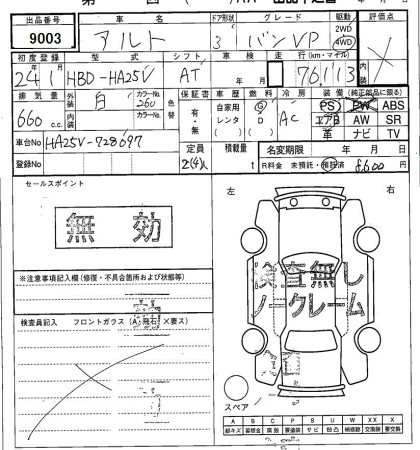 出品番号 車名 ドア形状 グレード 駆動 評価点
9003 アルト 3 バンVP 2WD 4WD
初度登録 型式 シフト 車検 走行(km・マイル) 内装
24年1月 HBD-HA25V AT 年 月 76,113
排気量 外装 色 カラーNo. 色替 保証書 車歴 燃料 冷房 装備 (純正部品に限る)
660 c.c. 白 26U 内装 カラーNo. 有・無 自家用 レンタ ( ) G D ( ) AC PS PW ABS
エアB AW SR
革 ナビ TV
車台No HA25V-728697
登録No 定員 2(4)人 積載量 t 名変期限 年 月 日
R料金 未預託・預託済 8,600 円
セールスポイント 左 右
無効
※注意事項記入欄(修復・不具合箇所および状態等)
検査無し
ノークレーム
検査員記入 フロントガラス(A・飛石・X要ス)
スペア
A B C P S U W X XX
線キズ 腐蝕 要塗装 サビ 凹凸 補修跡 交換跡 要交換